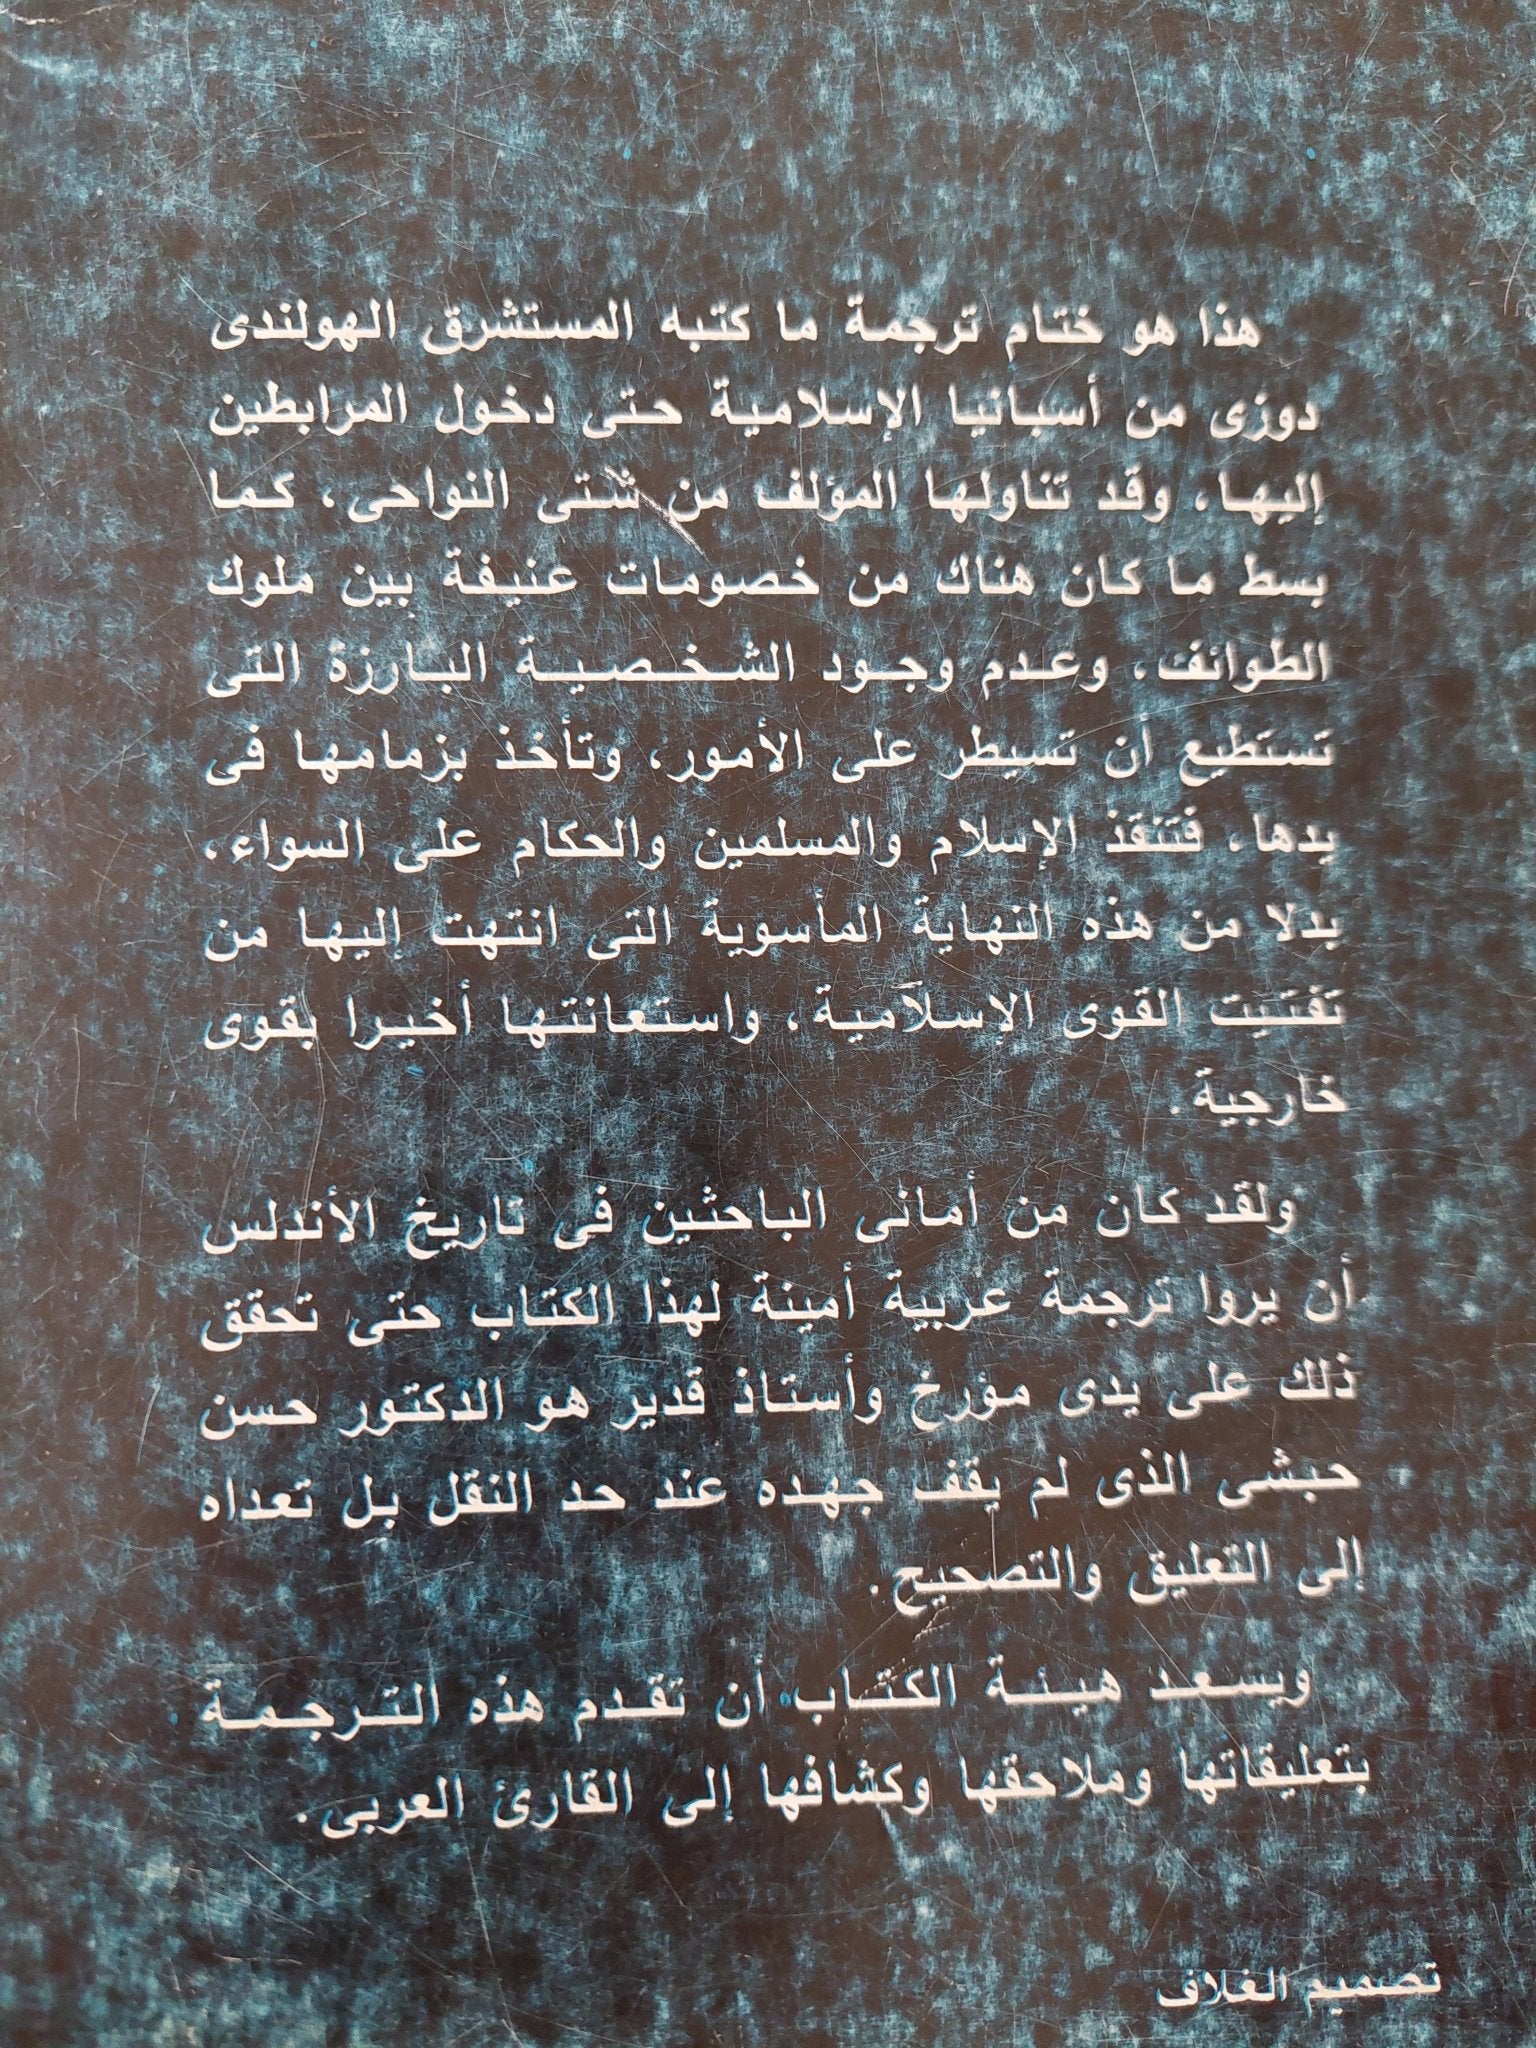 هذا هو ختام ترجمة ما كتبه المستشرق الهولندى
دوزى من أسبانيا الإسلامية حتى دخول المرابطين
إليها، وقد تناولها المؤلف من شتى النواحى، كما
بسط ما كان هناك من خصومات عنيفة بين ملوك
الطوائف، وعدم وجود الشخصية البارزة التى
تستطيع أن تسيطر على الأمور، وتأخذ بزمامها فى
يدها، فتنقذ الإسلام والمسلمين والحكام على السواء،
بدلا من هذه النهاية المأسوية التى انتهت إليها من
تفتيت القوى الإسلامية، واستعانتها أخيرا بقوى
خارجية.
ولقد كان من أمانى الباحثين فى تاريخ الأندلس
أن يروا ترجمة عربية أمينة لهذا الكتاب حتى تحقق
ذلك على يدى مؤرخ وأستاذ قدير هو الدكتور حسن
حبشى الذى لم يقف جهده عند حد النقل بل تعداه
إلى التعليق والتصحيح.
ويسعد هيئة الكتاب أن تقدم هذه الترجمة
بتعليقاتها وملاحقها وكشافها إلى القارئ العربى.
تصميم الغلاف